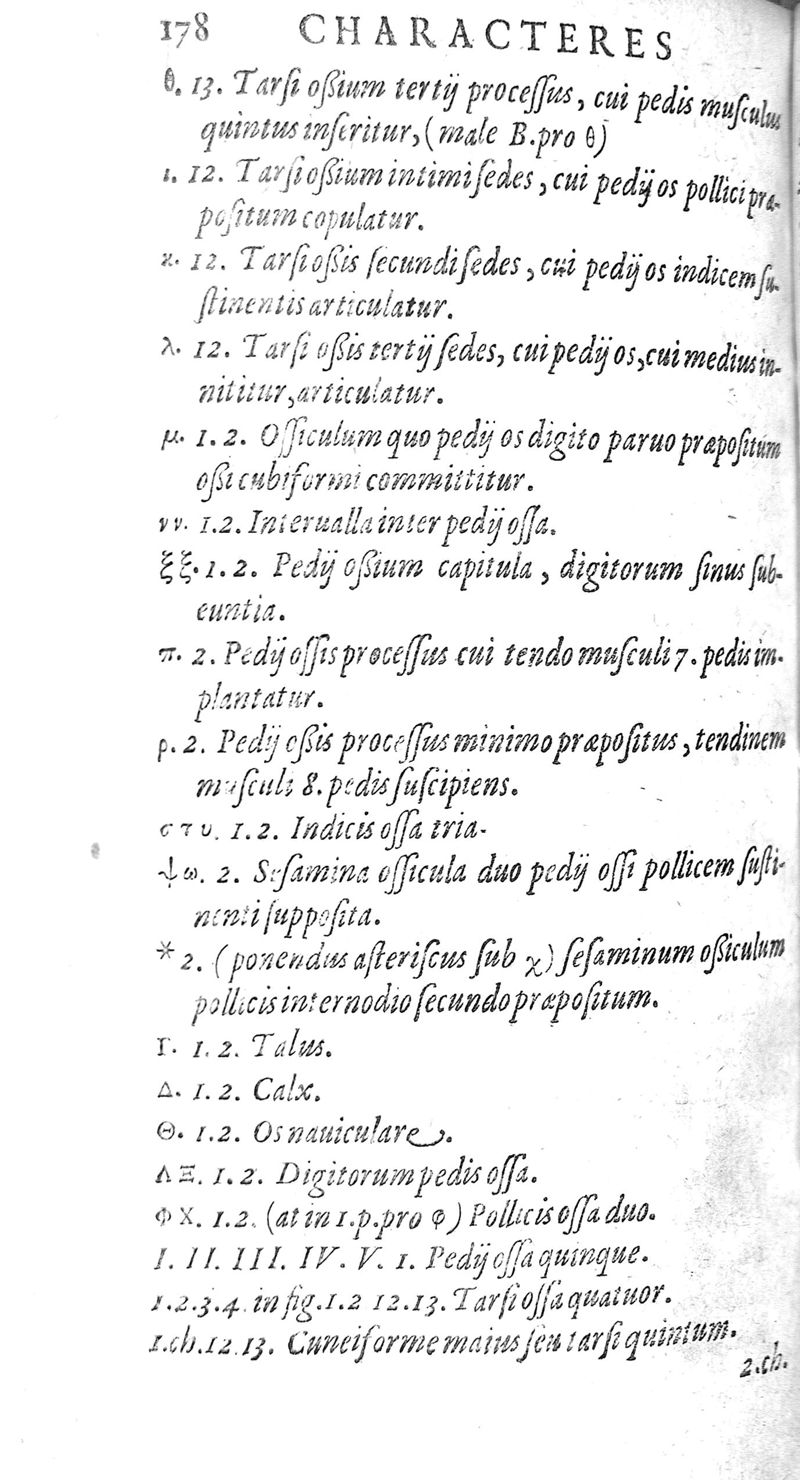 178 CHARACTERES
θ. 13. Tarſi oßium tertij proceſſus, cui pedis muſculus
quintus inſeritur, (male B. pro θ)
ι. 12. Tarſi oßium intimi ſedes, cui pedij os pollici præ-
poſitum copulatur.
κ. 12. Tarſi oßis ſecundi ſedes, cui pedij os indicem ſu-
ſtinentis articulatur.
λ. 12. Tarſi oßis tertij ſedes, cui pedij os, cui medius in-
nititur, articulatur.
μ. 1. 2. Oſſiculum quo pedij os digito paruo præpoſitum
oßi cubiformi committitur.
νν. 1.2. Interualla inter pedij oſſa.
ξξ. 1. 2. Pedij oßium capitula, digitorum ſinus ſub-
euntia.
π. 2. Pedij oſſis proceſſus cui tendo muſculi 7. pedis im-
plantatur.
ρ. 2. Pedij oßis proceſſus minimo præpoſitus, tendinem
muſculi 8. pedis ſuſcipiens.
σ τ υ. 1. 2. Indicis oſſa tria.
ψ ω. 2. Seſamina oſſicula duo pedij oſſi pollicem ſuſti-
nenti ſuppoſita.
* 2. (ponendus aſteriſcus ſub χ) ſeſaminum oßiculum
pollicis internodio ſecundo præpoſitum.
Γ. 1. 2. Talus.
Δ. 1. 2. Calx.
Θ. 1.2. Os nauiculare.
Λ Ξ. 1. 2. Digitorum pedis oſſa.
Φ Χ. 1.2. (at in 1.p.pro φ) Pollicis oſſa duo.
I. II. III. IV. V. 1. Pedij oſſa quinque.
1.2.3.4. in fig.1.2 12.13. Tarſi oſſa quatuor.
1.ch.12.13. Cuneiforme maius ſeu tarſi quintum.
2.ch.